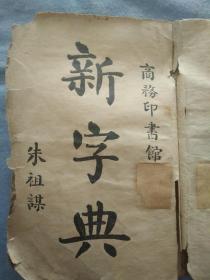 商務印書館
新字典
朱祖謀